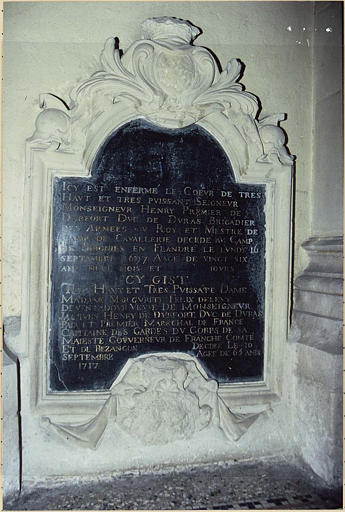 ICY EST ENFERME LE COEUR DE TRES
HAUT ET TRES PUISSANT SEIGNEUR
MONSEIGNEUR HENRY PREMIER DE
DURFORT DUC DE DURAS BRIGADIER
DES ARMEES DU ROY ET MESTRE DE
CAMP DE CAVALLERIE DECEDE AU CAMP
EN FLANDRE LE LUNDY 16
SEPTEMBRE 1697 AGE DE VINGT SIX
ANS MOIS ET IOURS
ICY GIST
TRES HAUTE ET TRES PUISSATE DAME
MADAME MARGUERITE FELIX DE LEVY
DE VENTADOUR VEUVE DE MONSEIGNEUR
DE DURFORT DUC DE DURAS
PAIR ET PREMIER MARECHAL DE FRANCE
CAPITAINE DES GARDES DU CORPS DE SA
MAIESTE GOUVERNEUR DE FRANCHE COMTE
ET DE BEZANCON DECEDEE LE 10
SEPTEMBRE AGEE DE 65 ANS
1717